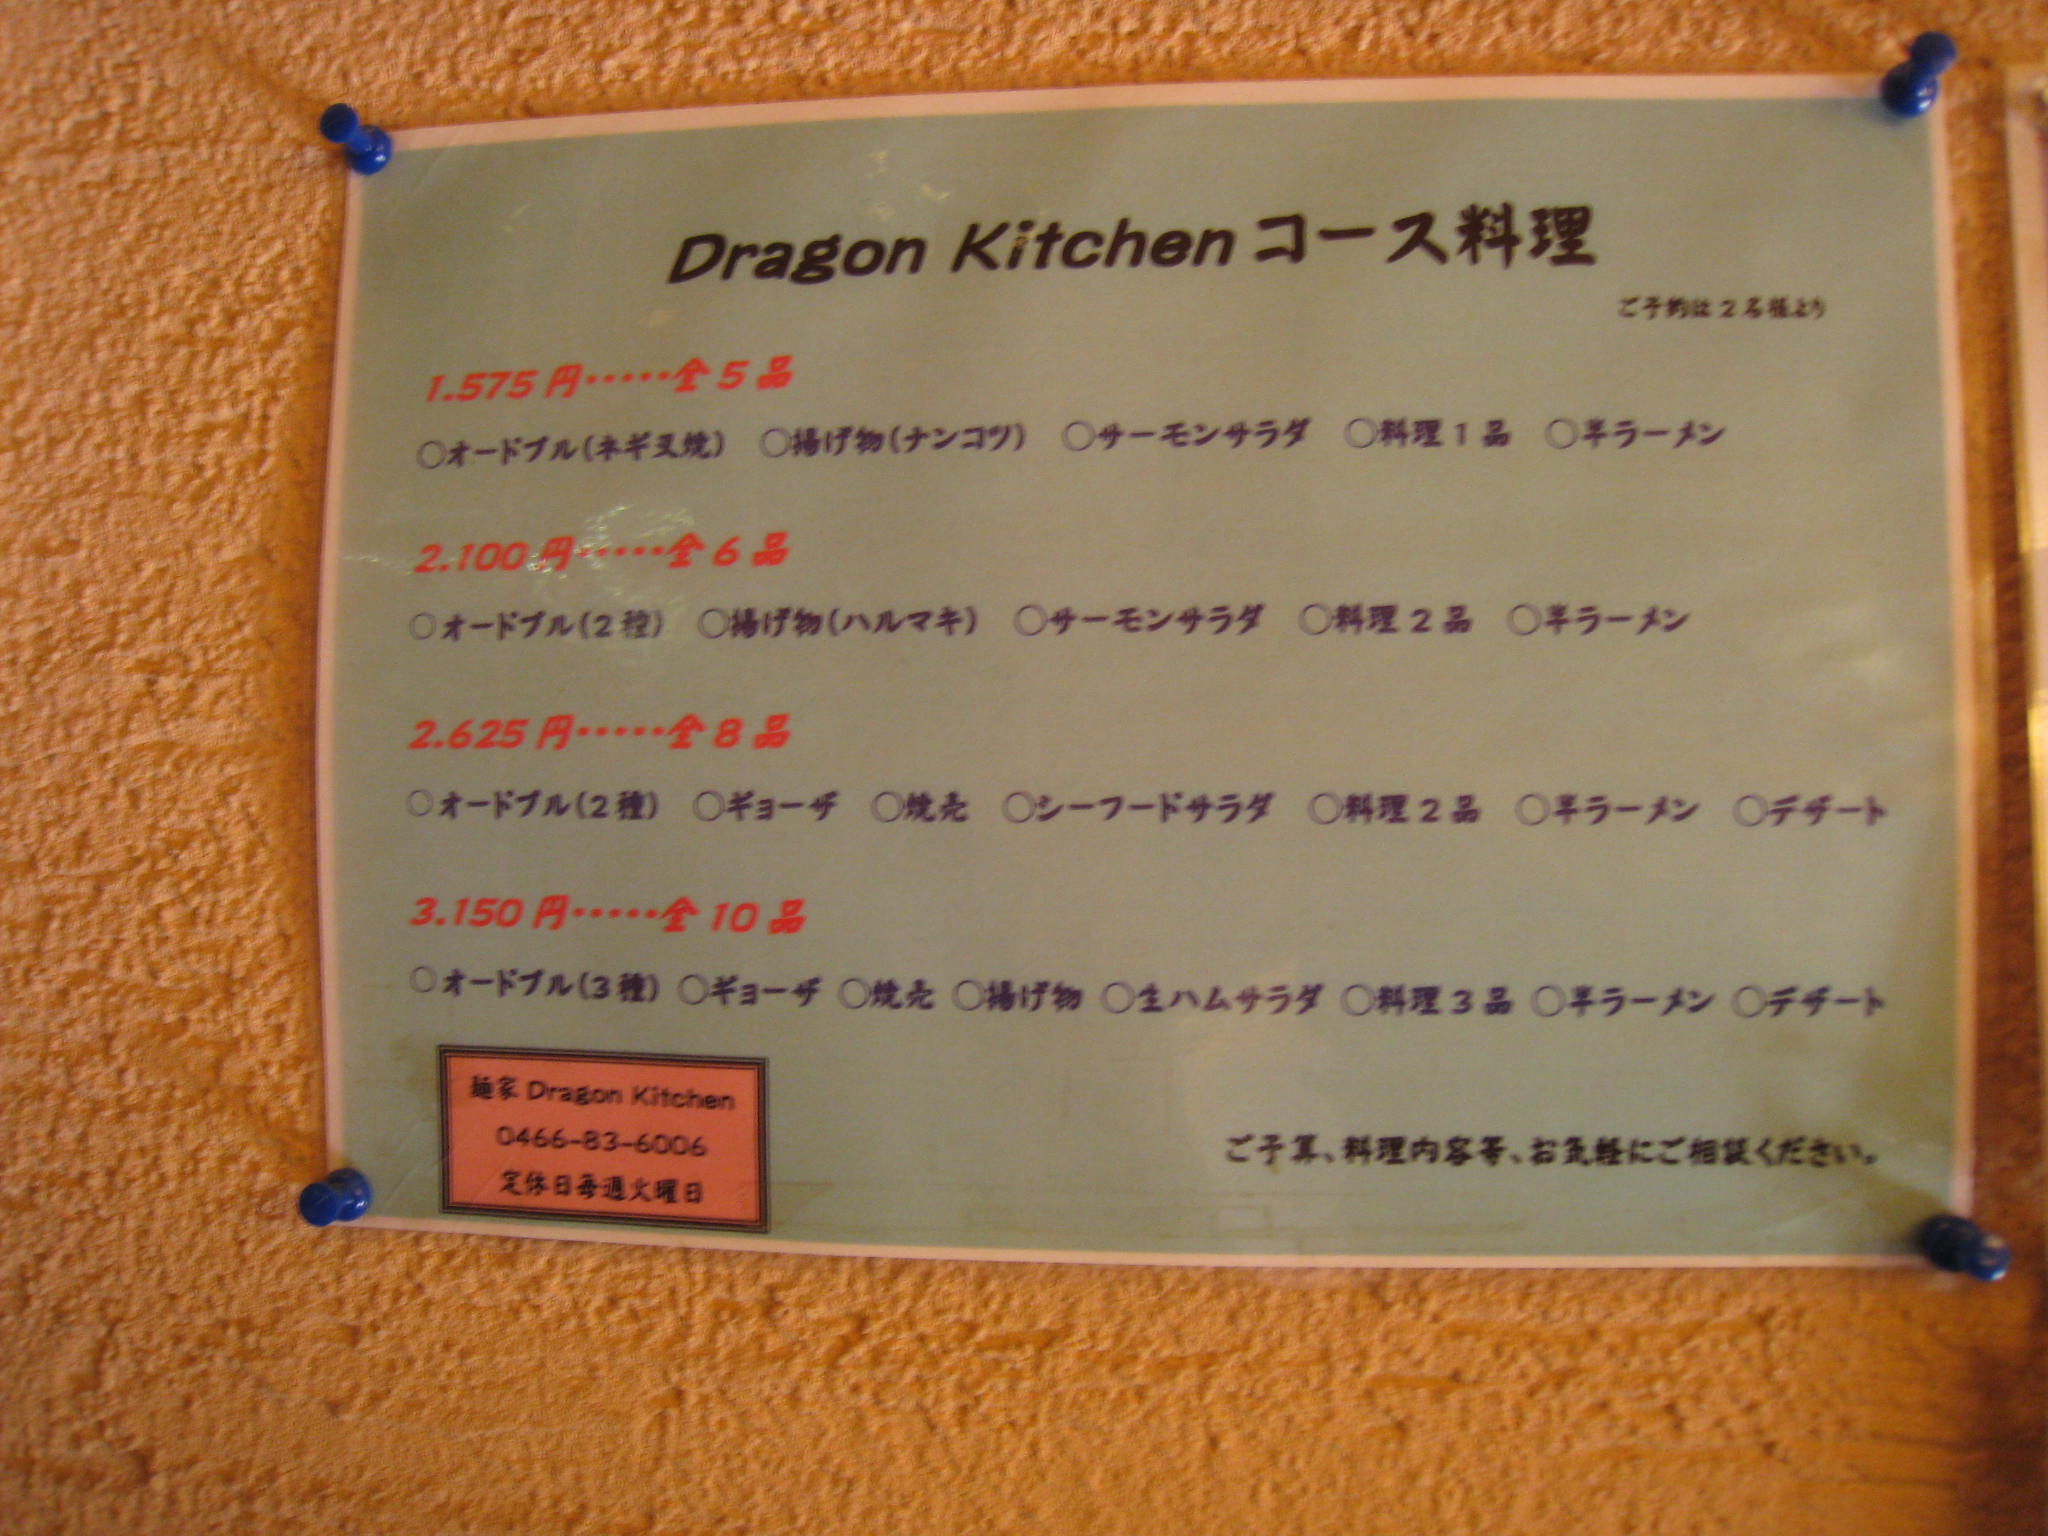 Dragon Kitchen コース料理
ご予約は2名様より
1.575円・・・・・全5品
○オードブル(ネギ叉焼) ○揚げ物(ナンコツ) ○サーモンサラダ ○料理1品 ○半ラーメン
2.100円・・・・・全6品
○オードブル(2種) ○揚げ物(ハルマキ) ○サーモンサラダ ○料理2品 ○半ラーメン
2.625円・・・・・全8品
○オードブル(2種) ○ギョーザ ○焼売 ○シーフードサラダ ○料理2品 ○半ラーメン ○デザート
3.150円・・・・・全10品
○オードブル(3種) ○ギョーザ ○焼売 ○揚げ物 ○生ハムサラダ ○料理3品 ○半ラーメン ○デザート
麺家 Dragon Kitchen
0466-83-6006
定休日毎週火曜日
ご予算、料理内容等、お気軽にご相談ください。